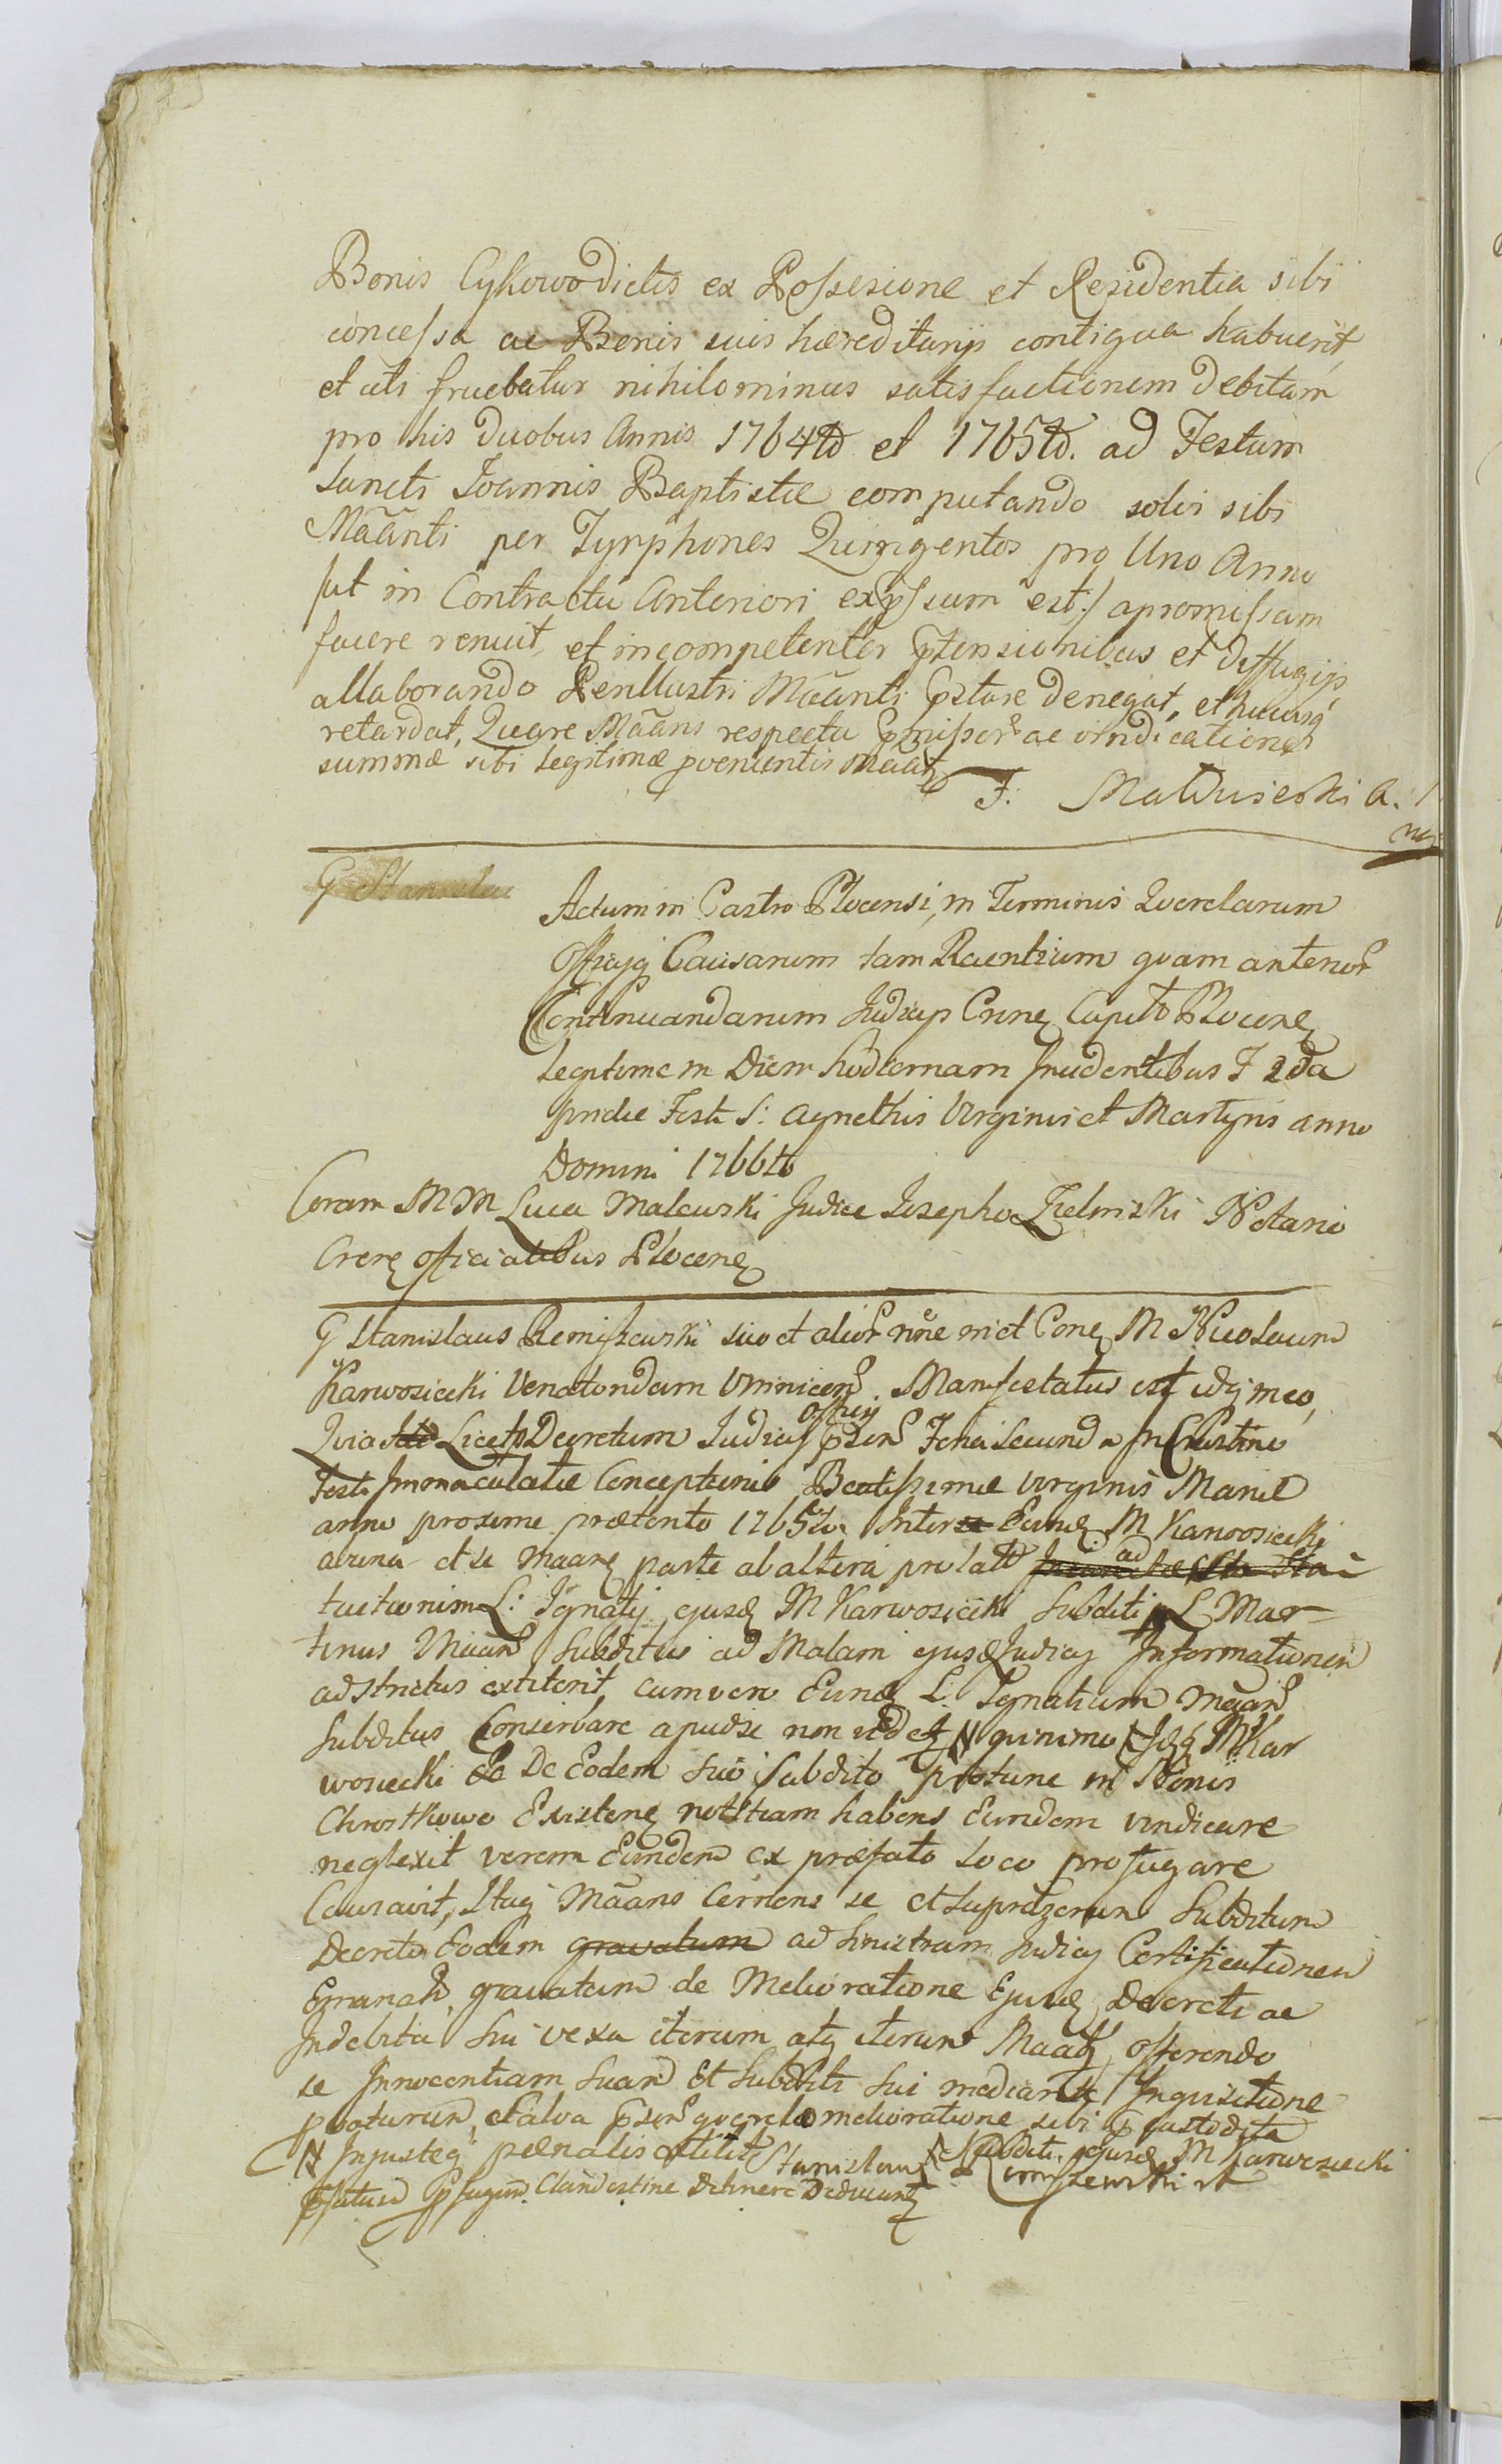 Bonis Cykowo dictis ex Possesione et Residentia sibi
concessa ac Bonis suis hæreditarijs contigua habuerit,
et uti fruebatur nihilominus satisfactionem debitam
pro his duobus Annis 1764to et 1765to. ad Festum
Sancti Joannis Baptistæ computando solvi sibi
Mãanti per Tynphones Quingentos pro Uno Anno
/ut in Contractu Anteriori exp̱ssum est:/ apromissam
facere renuit, et incompetenter p̱tensionibus et diffugijs
allaborando Perillustri Mãanti p̱stare denegat, et hucusq
retardat, Quare Mãans respectu p̱missor ac vindicationes
summæ sibi legitimæ pvenientis Mãat
F: Malduieski A.
mp
G Stanislau
Actum in Castro Plocensi, in Terminis Querelarum
Officijq Causarum tam Recentium quam anterior
Continuandarum Judicijs Crnen Capit Plocen
legitime in Diem hodiernam Incidentibus F 2da
pridie Festi S: Agnethis Virginis et Martyris anno
Domini 1766to
Coram M M Luca Malewski Judice Josepho Zielinski Notario
Cren officialibus Plocen
G Stanislaus Remiszewski suo et alior nne in et Con M Nicolaum
Karwosiecki Venatoridam Wninicen. Manifestatus est idq in eo,
officij
Quia Licet Decretum Judicij p̱sen Feria Secunda in Crastino
Festi Immaculatæ Conceptionis Beatissimæ Virginis Mariæ
anno proxime præterito 1765to Inter se Eund M Karwosiecki
ad
ab una et se Maan parte ab altera prolat Sta-
tuitionem L: Ignatij ejusd M Karwosiecki subditi L Mar-
tinus Mãan Subditus ad Malam ejusd Judicij Informationem
adstrictus extiterit, cum vero Eund L: Ignatium Mãan
Subditus Conservare apud se non N quinimo Idq M Kar
wosiecki De Eodem suo subdito protunc in Bonis
Chrostkowo Existen notitiam habens Eundem vindicare
neglexit verum Eundem ex præfato loco profugare
Causavit, Itaq Mãans Cernens se et Subditum
Decreto Eodem gravatum ad sinistram Judicij Certificationem
Emanat, gravatum de Melioratione Ejusd Decreti ac
Indebita sui vexa iterum atq iterum Maat, offerendo
se Innocentiam suam Et Subditi sui mediante Inquisitione
probaturum, Salva p̱sen querelæ melioratione sibi custodita
N Injusteq pænalis extitit Stanislaus Remiszewski
N Subditi ejusd M Karwosiecki
p̱fatum p̱fugum Clandestine Detinere Deducend